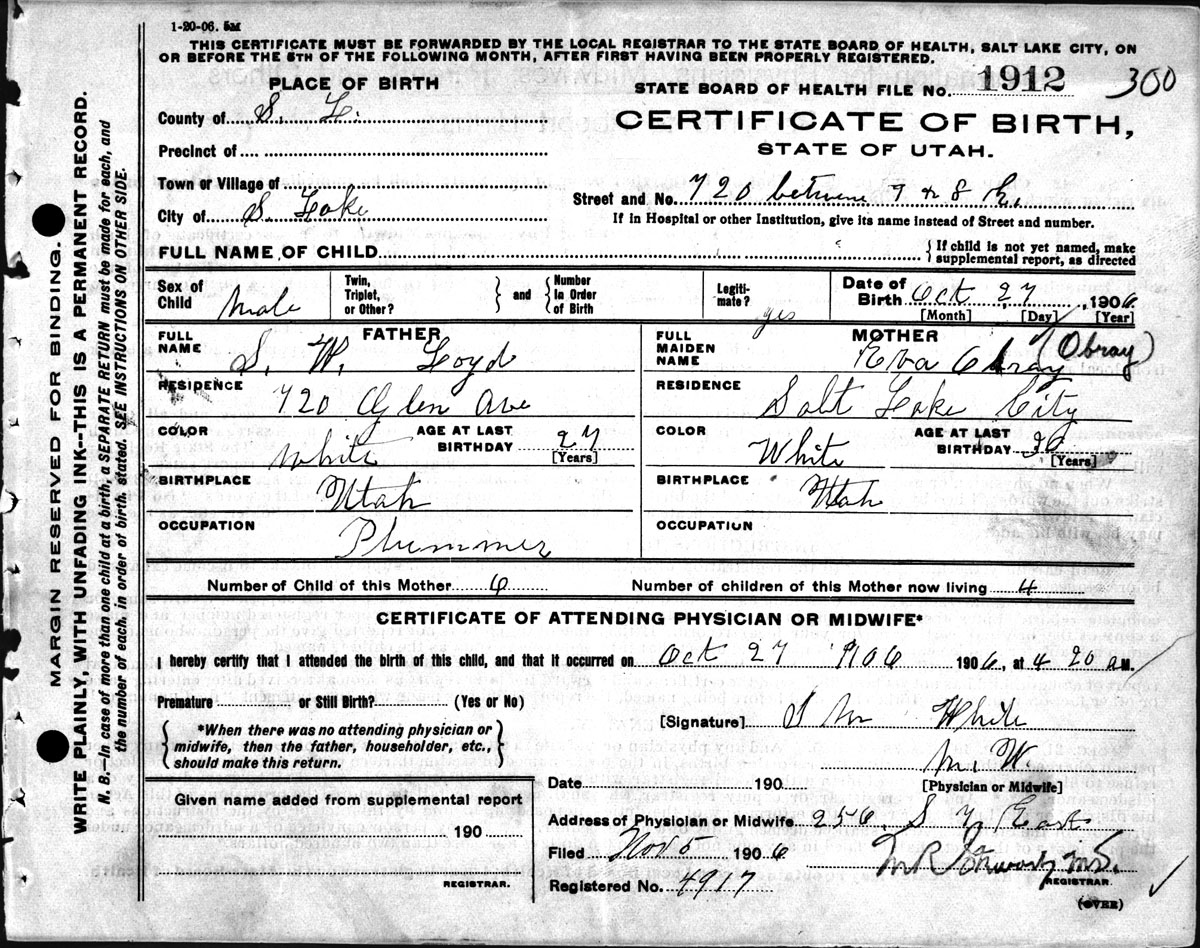 1-20-06. 5M
THIS CERTIFICATE MUST BE FORWARDED BY THE LOCAL REGISTRAR TO THE STATE BOARD OF HEALTH, SALT LAKE CITY, ON
OR BEFORE THE 5TH OF THE FOLLOWING MONTH, AFTER FIRST HAVING BEEN PROPERLY REGISTERED.
PLACE OF BIRTH
STATE BOARD OF HEALTH FILE No. 1912 300
County of S. L.
CERTIFICATE OF BIRTH,
STATE OF UTAH.
Precinct of
Town or Village of
City of S. Lake
Street and No. 720 between 7 & 8 E.
If in Hospital or other Institution, give its name instead of Street and number.
FULL NAME OF CHILD
If child is not yet named, make
supplemental report, as directed
Sex of Child Male
Twin, Triplet, or Other?
and
Number In Order of Birth
Legiti-mate? yes
Date of Birth Oct 27, 1906
[Month] [Day] [Year]
FATHER
FULL NAME S. W. Loyd
MOTHER
FULL MAIDEN NAME Eva Obray (Obray)
RESIDENCE 720 Glen Ave
RESIDENCE Salt Lake City
COLOR White
AGE AT LAST BIRTHDAY 27
[Years]
COLOR White
AGE AT LAST BIRTHDAY 26
[Years]
BIRTHPLACE Utah
BIRTHPLACE Utah
OCCUPATION Plummer
OCCUPATION
Number of Child of this Mother 6
Number of children of this Mother now living 4
CERTIFICATE OF ATTENDING PHYSICIAN OR MIDWIFE*
I hereby certify that I attended the birth of this child, and that it occurred on Oct 27 1906 1906, at 4 20 a M.
Premature or Still Birth? (Yes or No)
[Signature] S M White
*When there was no attending physician or
midwife, then the father, householder, etc.,
should make this return.
M. W.
[Physician or Midwife]
Date 190
Given name added from supplemental report
190
REGISTRAR.
Address of Physician or Midwife 256 S 7 East
Filed Nov 5 1906
REGISTRAR.
Registered No. 4917
(OVER)
MARGIN RESERVED FOR BINDING.
WRITE PLAINLY, WITH UNFADING INK--THIS IS A PERMANENT RECORD.
N. B.—In case of more than one child at a birth, a SEPARATE RETURN must be made for each, and
the number of each, in order of birth, stated. SEE INSTRUCTIONS ON OTHER SIDE.